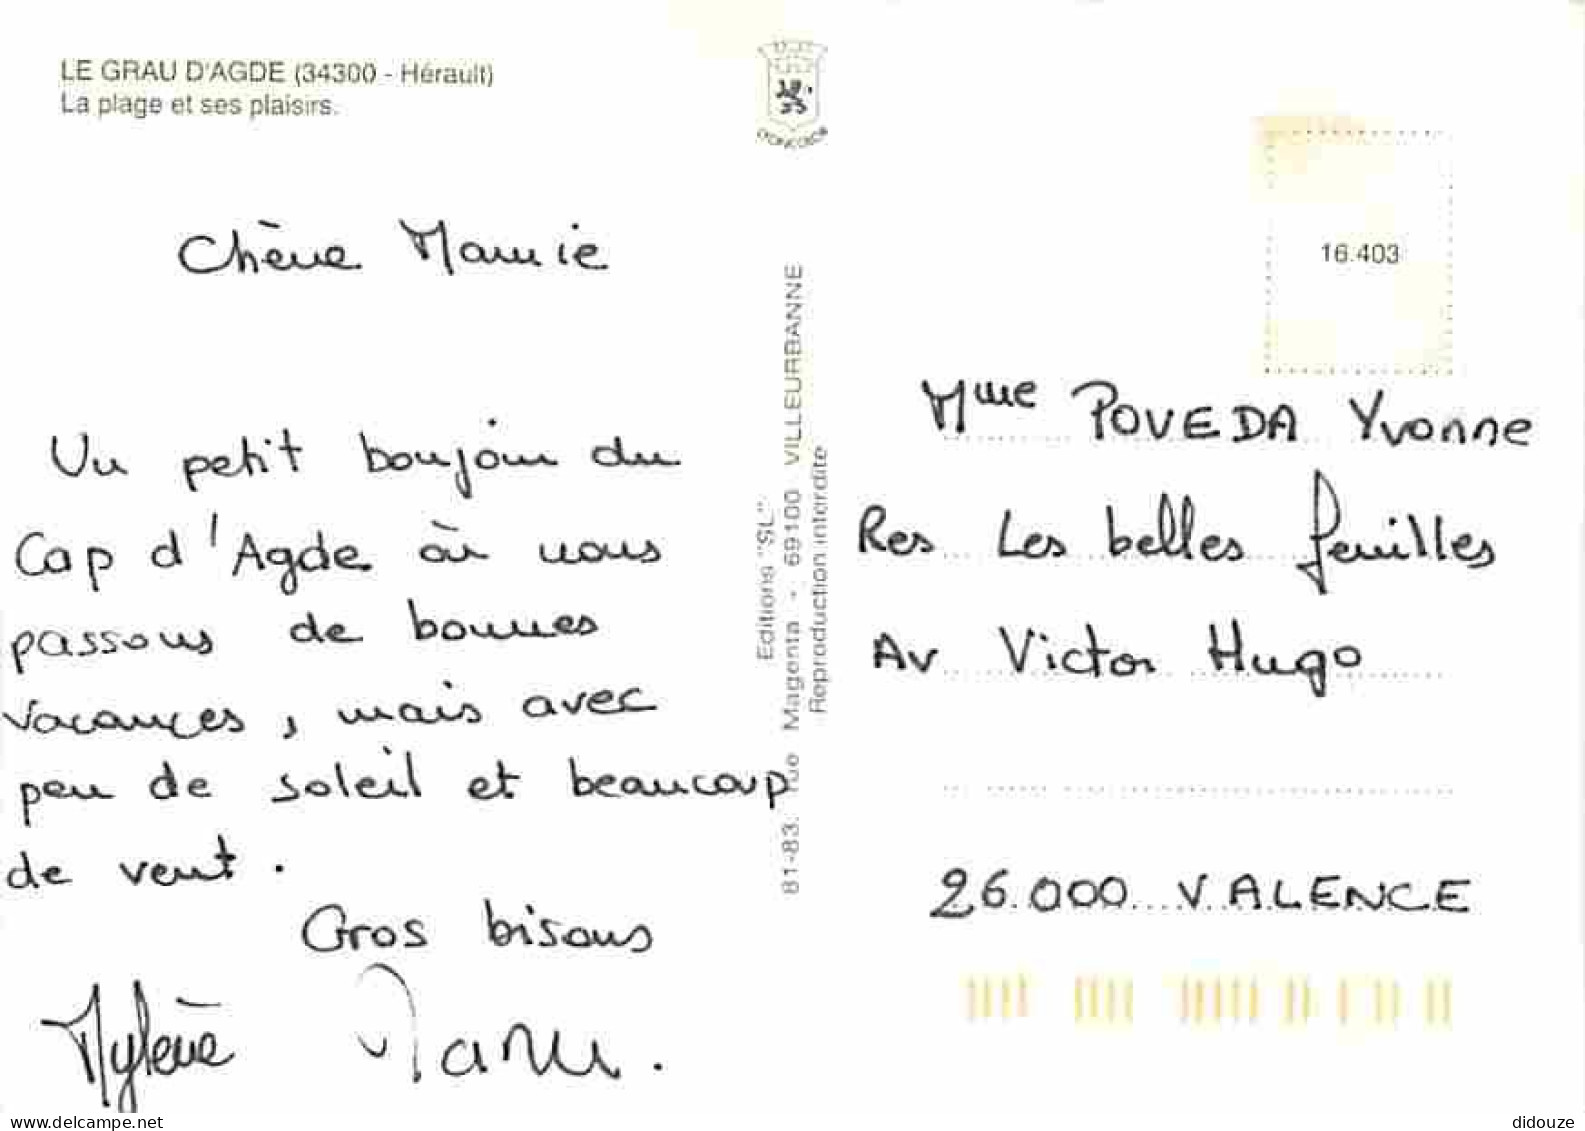 LE GRAU D'AGDE (34300 - Hérault)
La plage et ses plaisirs.
Chère Mamie
Un petit bonjour du
Cap d'Agde où nous
passons de bonnes
vacances, mais avec
peu de soleil et beaucoup
de vent.
Gros bisous
Mylène
Editions "SL"
81-83, rue Magenta - 69100 VILLEURBANNE
Reproduction interdite
LYONCOLOR
16.403
Mme POVEDA Yvonne
Res Les belles feuilles
Av Victor Hugo
26.000 VALENCE
www.delcampe.net
didouze